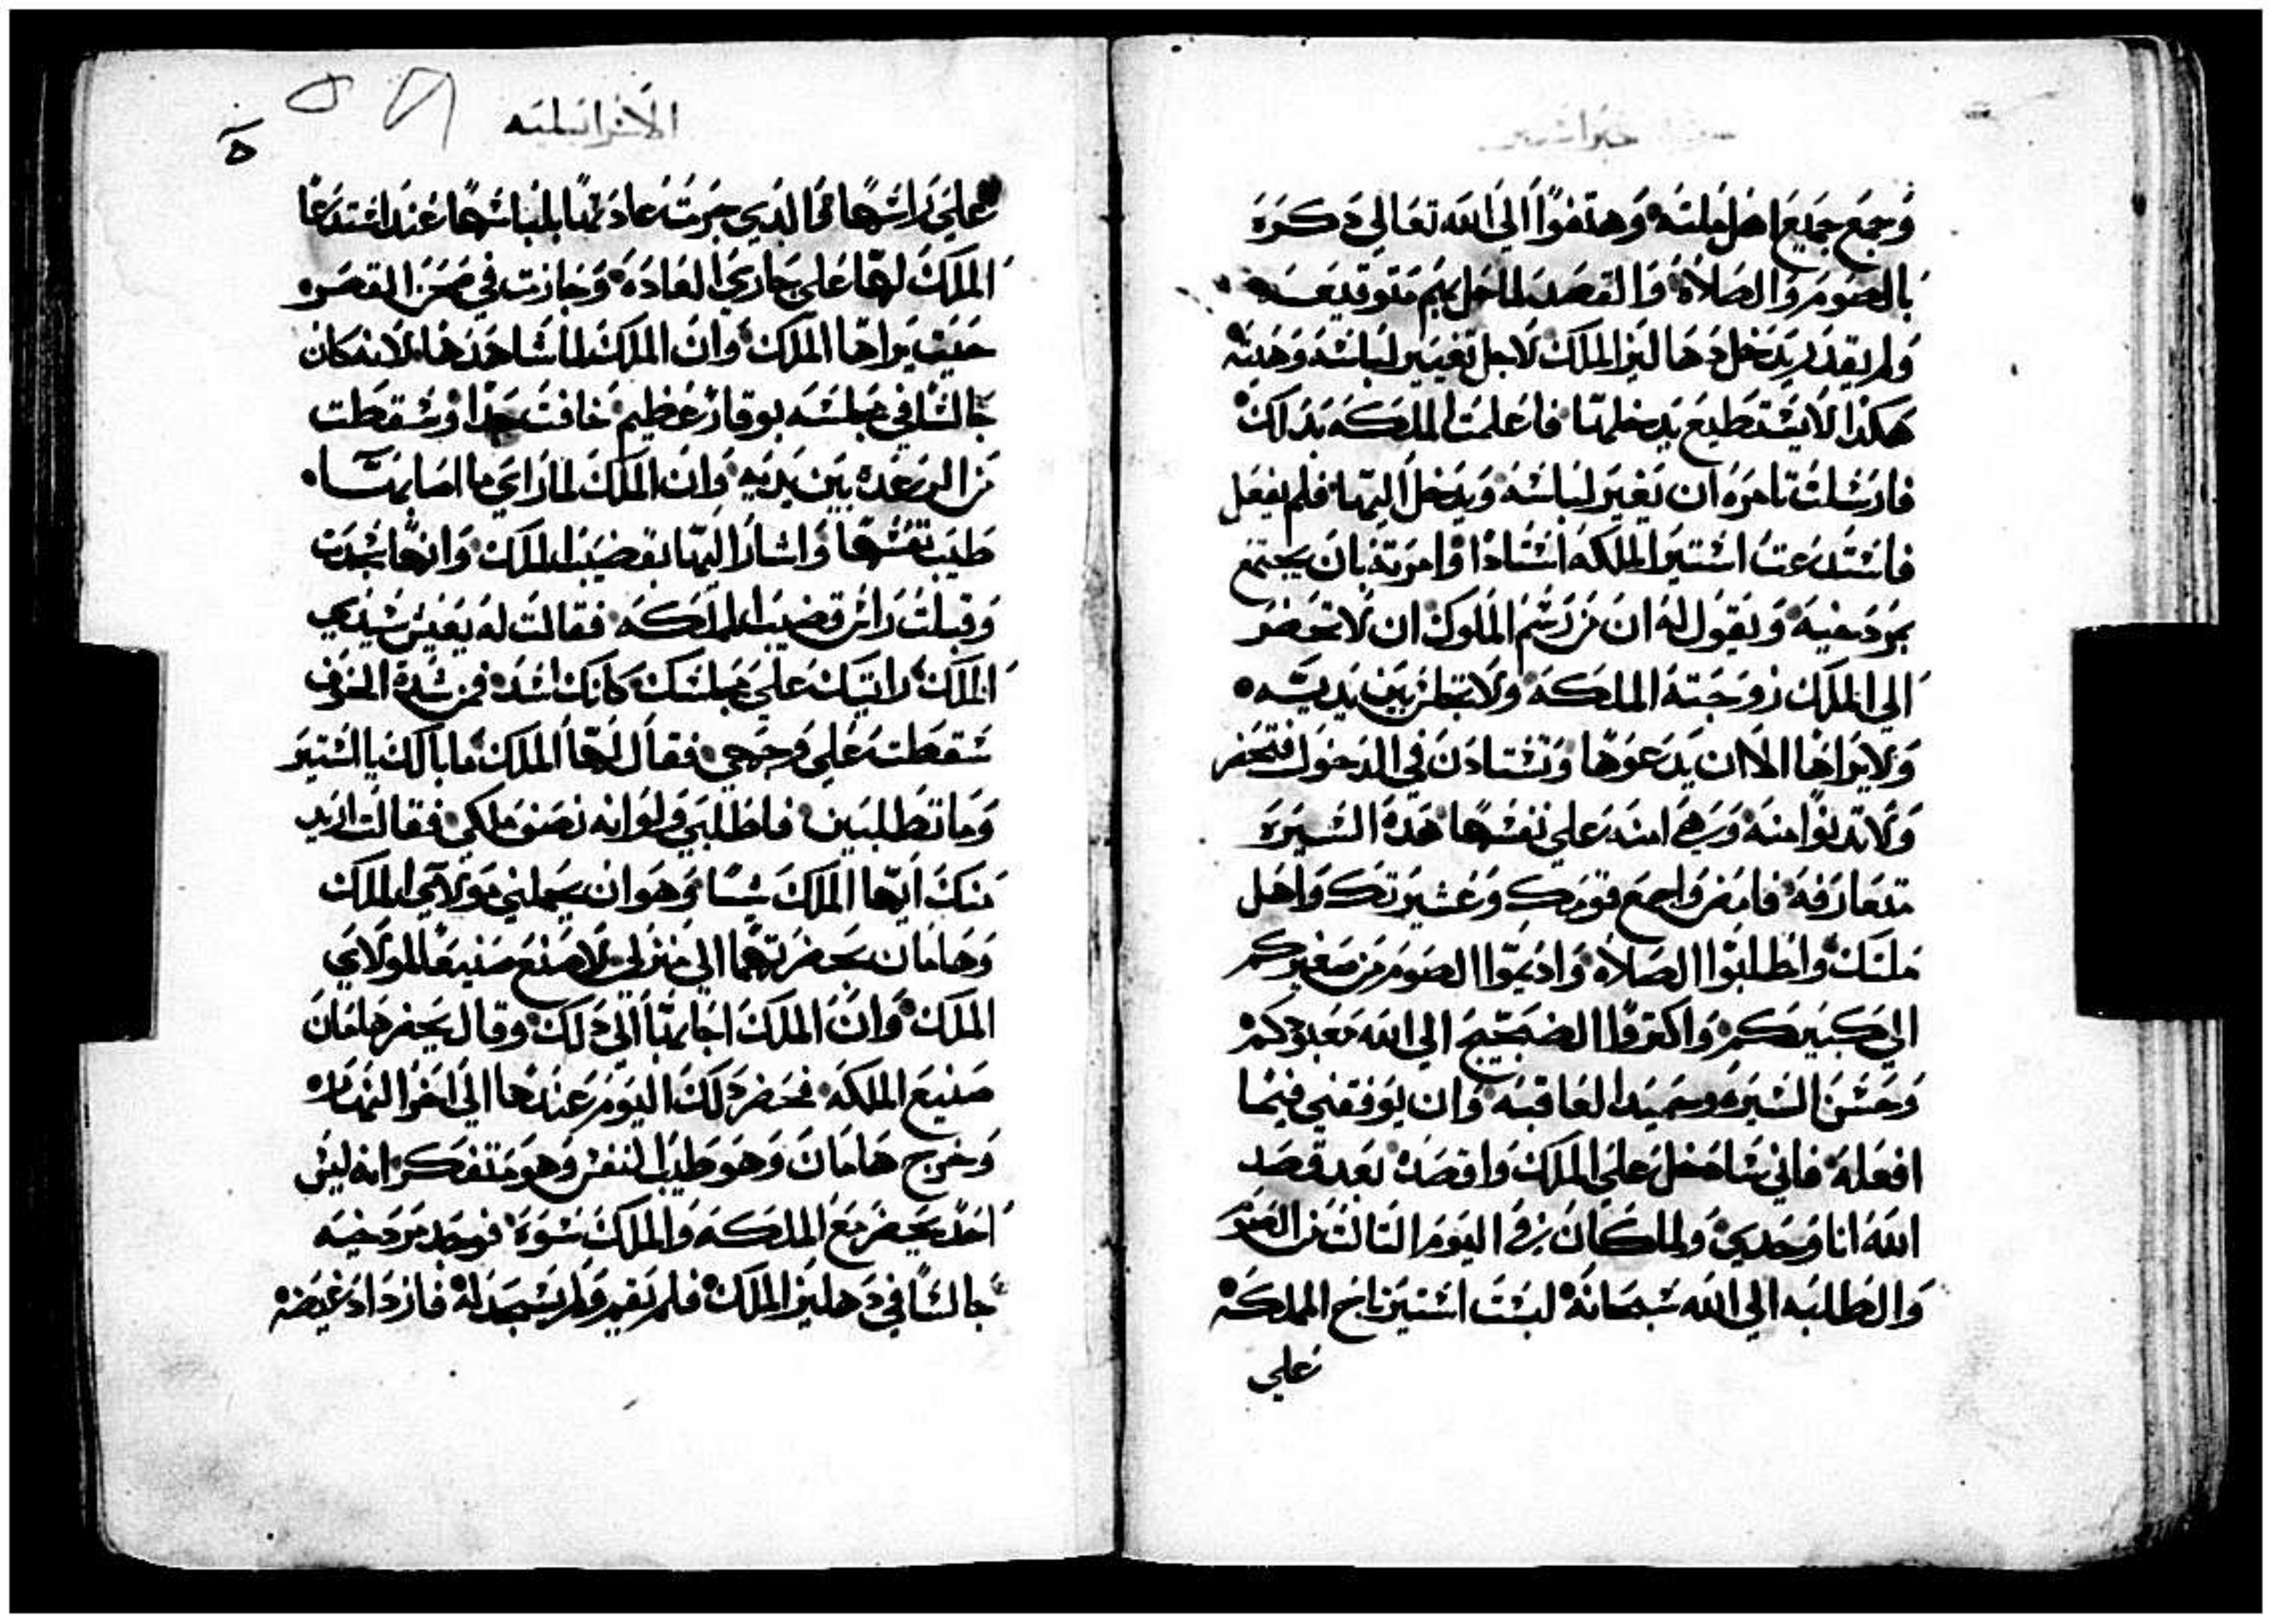 خبر استير
وَجمَع جميع اهل ملته وهتفوا الي الله تعالي دكره
بالصوم والصلاة والقصد لما حل بهم متوقيعه
ولم يقدر يدخل دهاليز الملك لاجل تغيير لباسه وهيته
هكذا لا يستطيع يدخلها فاعلمت الملكه بدلك
فارسلت تامره ان يغير لباسه ويدخل اليها فلم يفعل
فاستدعت استير الملكه استادا وامرته بان يجتمع
بمردخيه ويقول له ان من رسم الملوك ان لا تحضر
الي الملك زوجته الملكه ولا تجلس بين يديه
ولا يراها الا ان يدعوها وتستادن في الدخول فتحضر
ولا تدنوا منه وهي امنه علي نفسها هده السيره
متعارفه فامض واجمع قومك وعشيرتك واهل
ملتك واطلبوا الصلاه واديموا الصوم من صغيركم
الي كبيركم واكتروا الضجيج الي الله معبودكم
وحسن السيره وحميد العاقبه وان يوفقني فيما
افعله فاني سادخل علي الملك واقصده بعد قصد
الله انا وحدي ولما كان في اليوم التالت من الصوم
والطلبه الي الله سبحانه لبست استير تاج المملكه
علي
الاسرائيليه
ه
علي راسها الدي جرت عادتها بلباسها عند استدعا
الملك لها علي جاري العاده وجازت في صحن القصر
حيت يراها الملك وان الملك لما شاهدها لانه كان
جالسا في مجلسه بوقار عظيم خافت جدا وسقطت
من الرعده بين يديه وان الملك لما راي ما اصابها
طيب نفسها واشار اليها بقضيب الملك وانها سجدت
وقبلت راس قضيب المملكه فقالت له يعيش سيدي
الملك رايتك علي مجلسك كانك اسد فمن شدة الخوف
سقطت علي وجهي فقال لها الملك ما بالك يا استير
وما تطلبين فاطلبي ولو انه نصف ملكي فقالت اريد
منك ايها الملك شيا وهو ان يجملني مولاي الملك
وهامان بحضرتهما الي منزلي لاصنع صنيعا لمولاي
الملك وان الملك اجابها الي دلك وقال يحضر هامان
صنيع الملكه فحضر دلك اليوم عندها الي اخر النهار
وخرج هامان وهو طيب النفس وهو متفكر انه ليس
احد يحضر مع الملكه والملك سوه فوجد مردخيه
جالسا في دهليز الملك فلم يقم ولم يسجد له فازداد غيضه